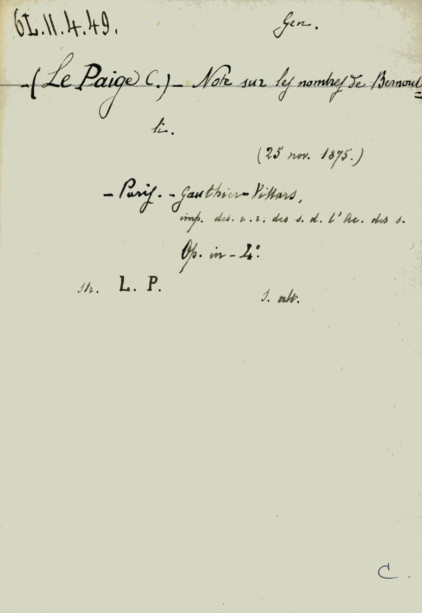 6L.11.4.49.
Gen.
-(Le Paige C.)- Note sur les nombres de Bernoul
li.
(25 nov. 1875.)
- Paris. - Gauthier-Villars,
imp. des. c. r. des s. d. l'Ac. des s.
Op. in-4°
L. P.
C.